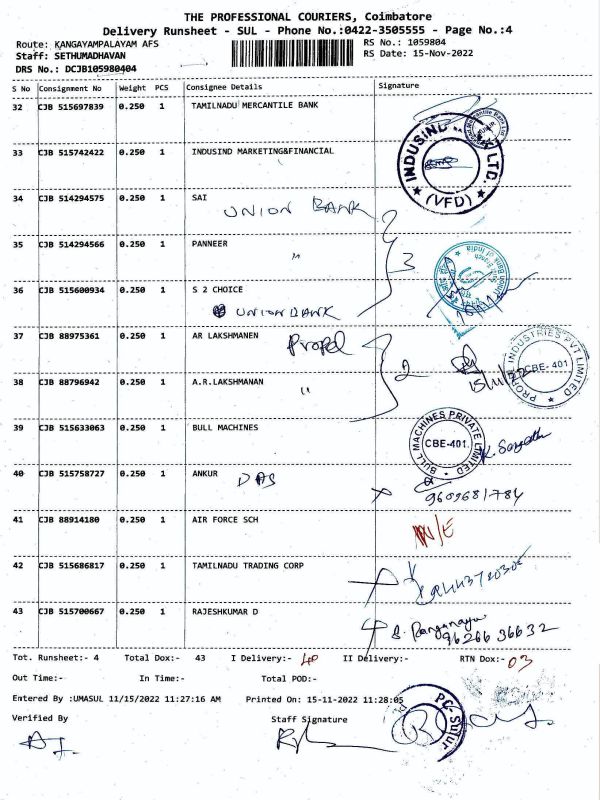 THE PROFESSIONAL COURIERS, Coimbatore
Delivery Runsheet - SUL - Phone No.:0422-3505555 - Page No.:4
Route: KANGAYAMPALAYAM AFS
RS No.: 1059804
Staff: SETHUMADHAVAN
RS Date: 15-Nov-2022
DRS No.: DCJB105980404
S No Consignment No Weight PCS Consignee Details Signature
32 CJB 515697839 0.250 1 TAMILNADU MERCANTILE BANK
33 CJB 515742422 0.250 1 INDUSIND MARKETING&FINANCIAL
INDUSIND LTD. (VFD)
34 CJB 514294575 0.250 1 SAI
UNION BANK
35 CJB 514294566 0.250 1 PANNEER
" 3
36 CJB 515600934 0.250 1 S 2 CHOICE
UNION BANK
37 CJB 88975361 0.250 1 AR LAKSHMANEN
Propel
INDUSTRIES PVT LIMITED CBE-401
38 CJB 88796942 0.250 1 A.R.LAKSHMANAN
" 2
39 CJB 515633063 0.250 1 BULL MACHINES
BULL MACHINES PRIVATE LIMITED CBE-401.
40 CJB 515758727 0.250 1 ANKUR
DAS
9609681784
41 CJB 88914180 0.250 1 AIR FORCE SCH
N/E
42 CJB 515686817 0.250 1 TAMILNADU TRADING CORP
43 CJB 515700667 0.250 1 RAJESHKUMAR D
9626636632
Tot. Runsheet:- 4 Total Dox:- 43 I Delivery:- 40 II Delivery:- RTN Dox:- 03
Out Time:- In Time:- Total POD:-
Entered By :UMASUL 11/15/2022 11:27:16 AM Printed On: 15-11-2022 11:28:05
Verified By Staff Signature
PC-Sulur